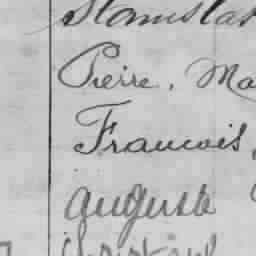 Stanislas
Pierre, Ma
Francois,
auguste